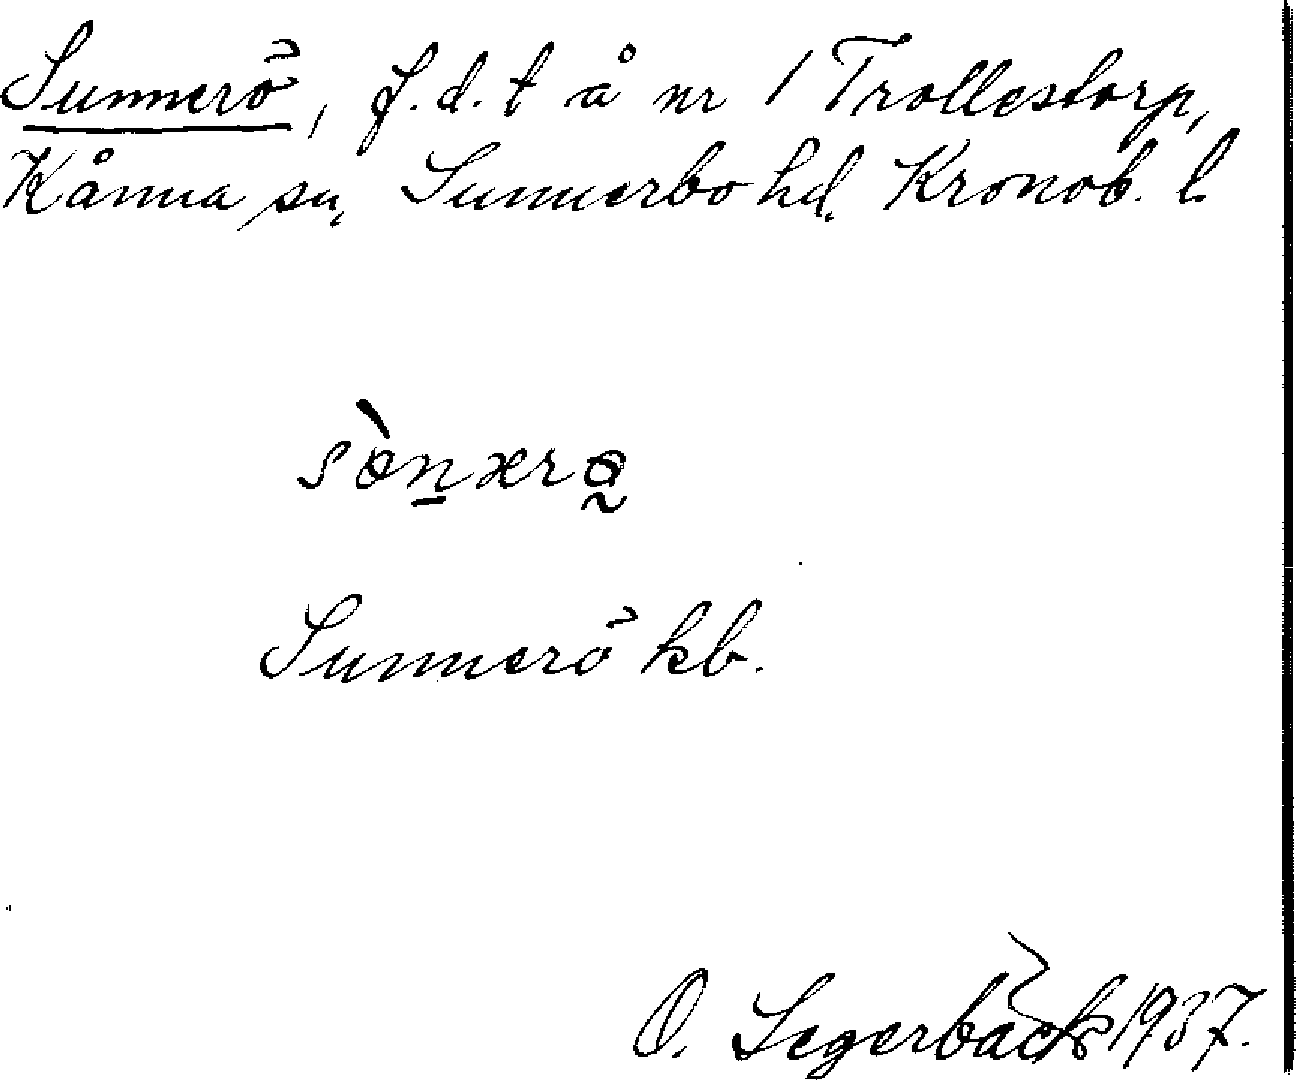 Sunnerö, f.d. t å nr 1 Trollestorp,
Kånna sn, Sunnerbo hd, Kronob. l.
Sunnerö kb.
O. Segerbäck 1937.